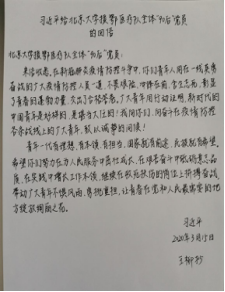 习近平给北京大学援鄂医疗队全体"90后"党员
的回信
北京大学援鄂医疗队全体"90后"党员:
来信收悉。在新冠肺炎疫情防控斗争中,你们青年人同在一线英勇
奋战的广大疫情防控人员一道,不畏艰险、冲锋在前、舍生忘死,彰显
了青春的蓬勃力量,交出了合格答卷。广大青年用行动证明,新时代的
中国青年是好样的,是堪当大任的!我向你们、向奋斗在疫情防控
各条战线上的广大青年,致以诚挚的问候!
青年一代有理想、有本领、有担当,国家就有前途,民族就有希望。
希望你们努力在为人民服务中茁壮成长、在艰苦奋斗中砥砺意志品
质、在实践中增长工作本领,继续在救死扶伤的岗位上拼搏奋战,
带动广大青年不惧风雨、勇挑重担,让青春在党和人民最需要的地
方绽放绚丽之花。
习近平
2020年3月15日